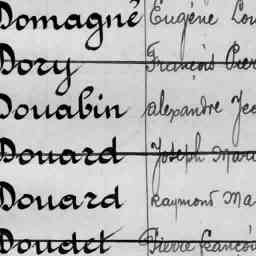 Domagné Eugène Lou
Dory François Pier
Douabin alexandre Jea
Douard Joseph Mari
Douard Raymond Ma
Doudet Pierre françois